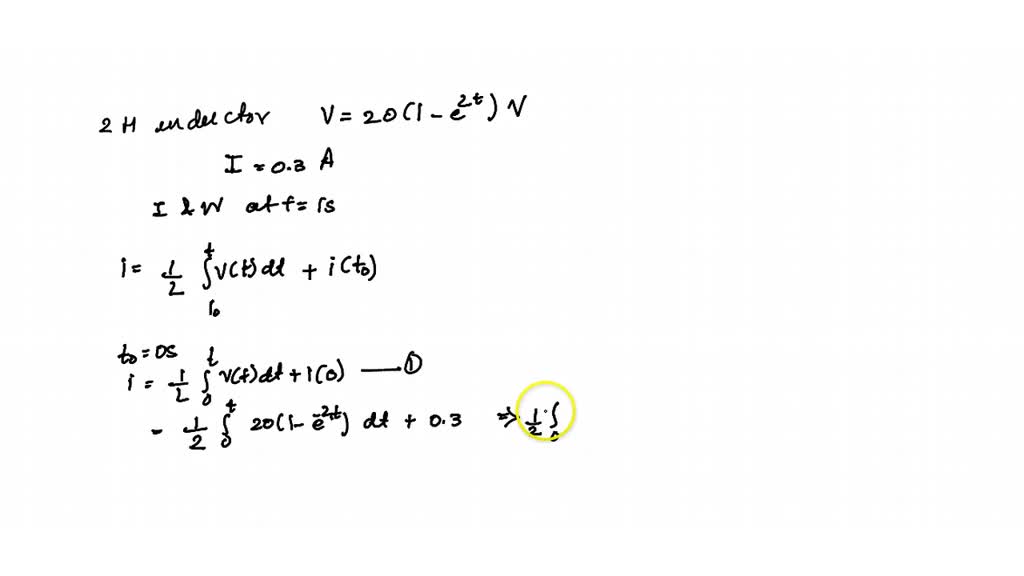 2 H inductor V = 20(1 - e^2t) V
I = 0.3 A
I & W at t = 1s
i = 1/2 ∫_t0^t v(t) dt + i(t0)
t0 = 0s
i = 1/2 ∫_0^t v(t) dt + i(0) —— ①
= 1/2 ∫_0^t 20(1 - e^-2t) dt + 0.3 ⇒ 1/2 ∫_0